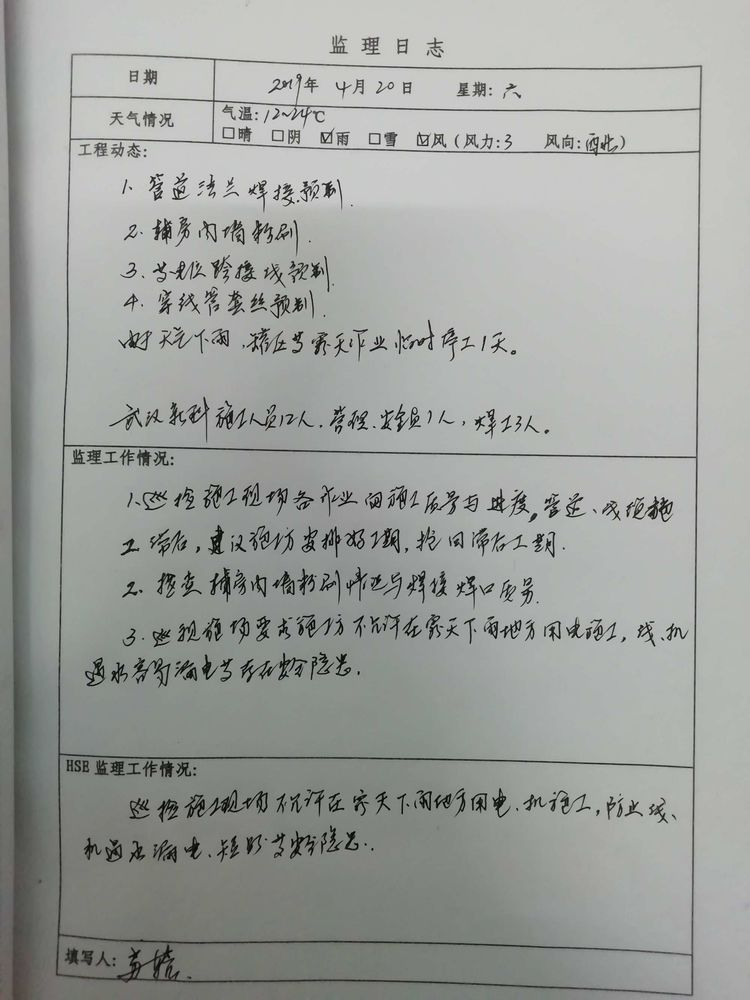 监理日志
日期 2019年 4月 20日 星期:六
天气情况 气温:12~24℃
□晴 □阴 ☑雨 □雪 ☑风(风力:3 风向:西北)
工程动态:
1. 管道法兰焊接预制.
2. 辅房内墙粉刷.
3. 等电位跨接线预制.
4. 穿线管套丝预制.
由于天气下雨,罐区等露天作业临时停工1天。
武汉新科施工人员12人.管理.安全员1人,焊工3人。
监理工作情况:
1. 巡检施工现场各作业面施工质量与进度。管道、线缆施
工滞后,建议施工方安排好工期,抢回滞后工期.
2. 检查辅房内墙粉刷情况与焊接焊口质量.
3. 巡视施现场要求施工方不允许在露天下雨地方用电施工,线、机
遇水容易漏电等存在安全隐患.
HSE 监理工作情况:
巡检施工现场不允许在露天下雨地方用电、机施工,防止线、
机遇水漏电、短路等安全隐患.
填写人:苏